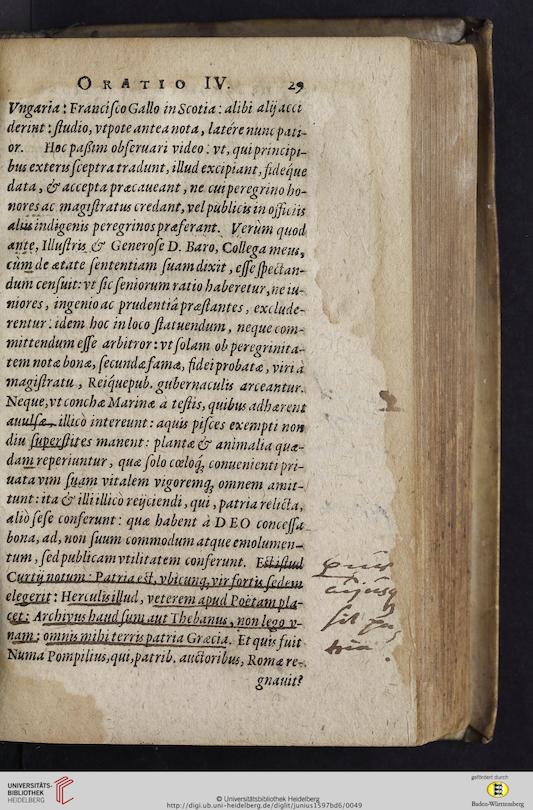 ORATIO IV. 29
Vngaria: Francisco Gallo in Scotia: alibi alij acci
derint: studio, vtpote antea nota, latére nunc pati-
or. Hoc paßim obseruari video: vt, qui principi-
bus exteris sceptra tradunt, illud excipiant, fideque
data, & accepta præcaueant, ne cui peregrino ho-
nores ac magistratus credant, vel publicis in officiis
aliis indigenis peregrinos præferant. Verùm quod
ante, Illustris & Generose D. Baro, Collega meus,
cùm de ætate sententiam suam dixit, esse spectan-
dum censuit: vt sic seniorum ratio haberetur, ne iu-
niores, ingenio ac prudentiâ præstantes, exclude-
rentur: idem hoc in loco statuendum, neque com-
mittendum esse arbitror: vt solam ob peregrinita-
tem notæ bonæ, secundæ famæ, fidei probatæ, viri à
magistratu, Reiquepub. gubernaculis arceantur.
Neque, vt conchæ Marinæ a testis, quibus adhærent
auulsæ, illicò intereunt: aquis pisces exempti non
diu superstites manent: plantæ & animalia quæ-
dam reperiuntur, quæ solo cœloq́; conuenienti pri-
uata vim suam vitalem vigoremq́; omnem amit-
tunt: ita & illi illicò reijciendi, qui, patria relicta,
aliò sese conferunt: quæ habent à DEO concessa
bona, ad, non suum commodum atque emolumen-
tum, sed publicam vtilitatem conferunt. Est istud
Curtij notum: Patria est, vbicunq; vir fortis sedem
elegerit: Herculis illud, veterem apud Poëtam pla-
cet: Archivus haud sum aut Thebanus, non lego v-
nam: omnis mihi terris patria Græcia. Et quis fuit
Numa Pompilius, qui, patrib. auctoribus, Romæ re-
gnauit?
sit
UNIVERSITÄTS-
BIBLIOTHEK
HEIDELBERG
© Universitätsbibliothek Heidelberg
http://digi.ub.uni-heidelberg.de/diglit/junius1597bd6/0049
gefördert durch
Baden-Württemberg